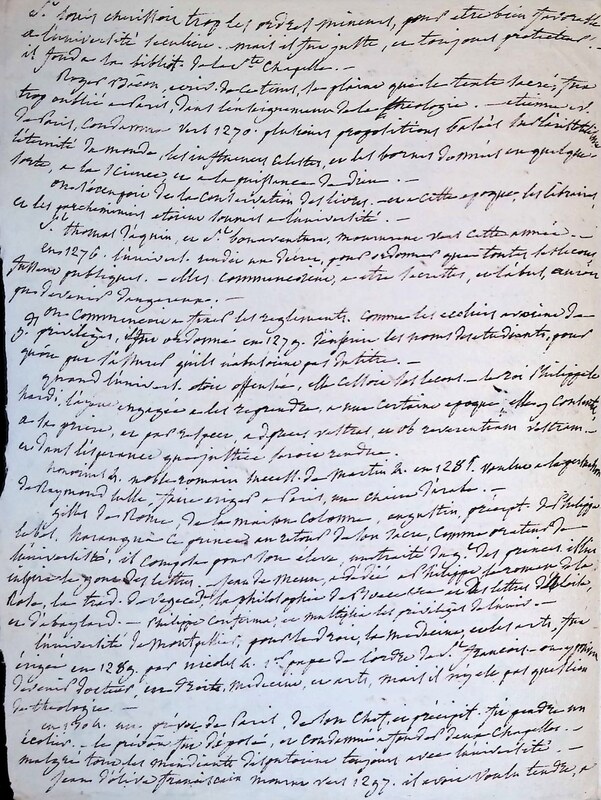 St. Louis cherissoit trop les ordres mineurs, pour etre bien favorable
a l'université seculiere. mais il fut juste, et toujours protecteur. -
il fonda la biblioth. de la Ste. Chapelle. -
Roger Bacon, ecriv. de ce tems, se plaint que le texte sacré, fut
trop oublié a Paris, dans l'enseignement de la theologie. - etienne ev.
de Paris, condamna vers 1270. plusieurs propositions basées sur l'aristotelisme
l'éternité du monde, les influences celestes, et les bornes données en quelque
sorte, a la science et a la puissance de dieu. -
on s'occupoit de la conservation des livres. - et a cette epoque, les libraires,
et les parcheminiers etoient soumis a l'université. -
St. thomas d'aquin, et St. bonaventure, moururent vers cette année. -
en 1276. l'univers. rendit un decret, pour ordonner que toutes les leçons
fussent publiques. - elles commençoient a etre secrettes, et l'abus, auroit
pu devenir dangereux. -
on commençoit a fixer les reglements. comme les ecoliers avoient de
gds. privileges, il fut ordonné en 1279. d'inscrire les noms des etudiants, pour
qu'on put s'assurer qu'ils n'abusoient pas du titre. -
quand l'univers. etoit offensée, elle cessoit ses leçons. - le roi Philippe le
hardi, l'ayant engagée a les reprendre, a une certaine epoque, elle y consentit
a la priere, et par respect, ad preces vestras et ob reverentiam vestram -
et dans l'esperance que justice seroit rendue.
honorius 4. noble romain success. de Martin 4. en 1285. voulut a la persuasion
de Raymond lulle, faire eriger a Paris, une chaire d'arabe. -
Gilles de Rome, de la maison Colonne, augustin, précept. de Philippe
le bel, harangua ce prince au retour de son sacre, comme orateur de
l'université. il composa pour son éleve, un traité du gt. des princes. il lui
inspira le gout des lettres. - Jean de Meun, a dédié a Philippe le roman de la
Rose, la trad. de vegece, la philosophie de Boece et des lettres d'heloïse
et d'abaylard. - Philippe confirma, et multiplia les privileges de l'univ. -
l'université de Montpellier, pour le droit, la medecine, et les arts, fut
érigée en 1289. par nicolas 4. 1er. pape de l'ordre de St. françois. - on y
devenir docteur, en droits, medecine, et arts, mais il n'y est pas question
de theologie. -
en 1304. un prévot de Paris de son chef, et précipit. fit pendre un
écolier. - le prévôt fut déposé, et condamné a fonder deux chapelles. -
malgré tout les mendiants disputoient toujours avec l'université. -
Jean d'olive franciscain mourut vers 1297. il avoit voulu tendre, a